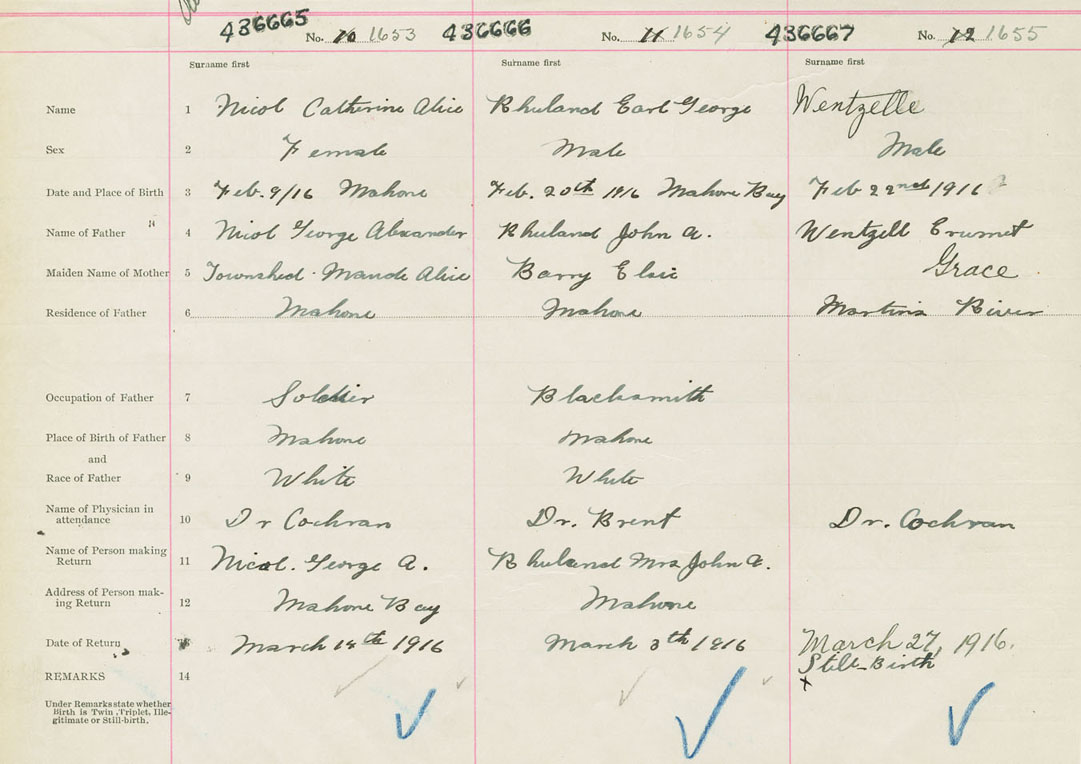 436665 No. 10 1653 436666 No. 11 1654 436667 No. 12 1655
Surname first Surname first Surname first
Name 1 Nicol Catherine Alice Rhuland Earl George Wentzelle
Sex 2 Female Male Male
Date and Place of Birth 3 Feb. 9/16 Mahone Feb. 20th 1916 Mahone Bay Feb 22nd 1916
Name of Father 4 Nicol George Alexander Rhuland John A. Wentzell
Maiden Name of Mother 5 Townshed Maude Alice Barry Elsie Grace
Residence of Father 6 Mahone Mahone Martins River
Occupation of Father 7 Soldier Blacksmith
Place of Birth of Father 8 Mahone Mahone
and
Race of Father 9 White White
Name of Physician in
attendance 10 Dr Cochran Dr. Brent Dr. Cochran
Name of Person making
Return 11 Nicol. George A. Rhuland Mrs John A.
Address of Person mak-
ing Return 12 Mahone Bay Mahone
Date of Return 13 March 14th 1916 March 3th 1916 March 27, 1916.
Still-Birth
REMARKS 14
Under Remarks state whether
Birth is Twin, Triplet, Ille-
gitimate or Still-birth.